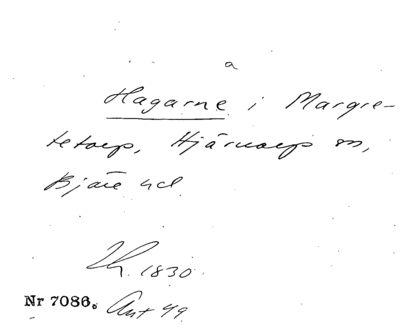 a
Hagarne i Margre-
tetorp, Hjärnarp sn,
Bjäre hd.
Lh. 1830.
Nr 7086. Ant 49